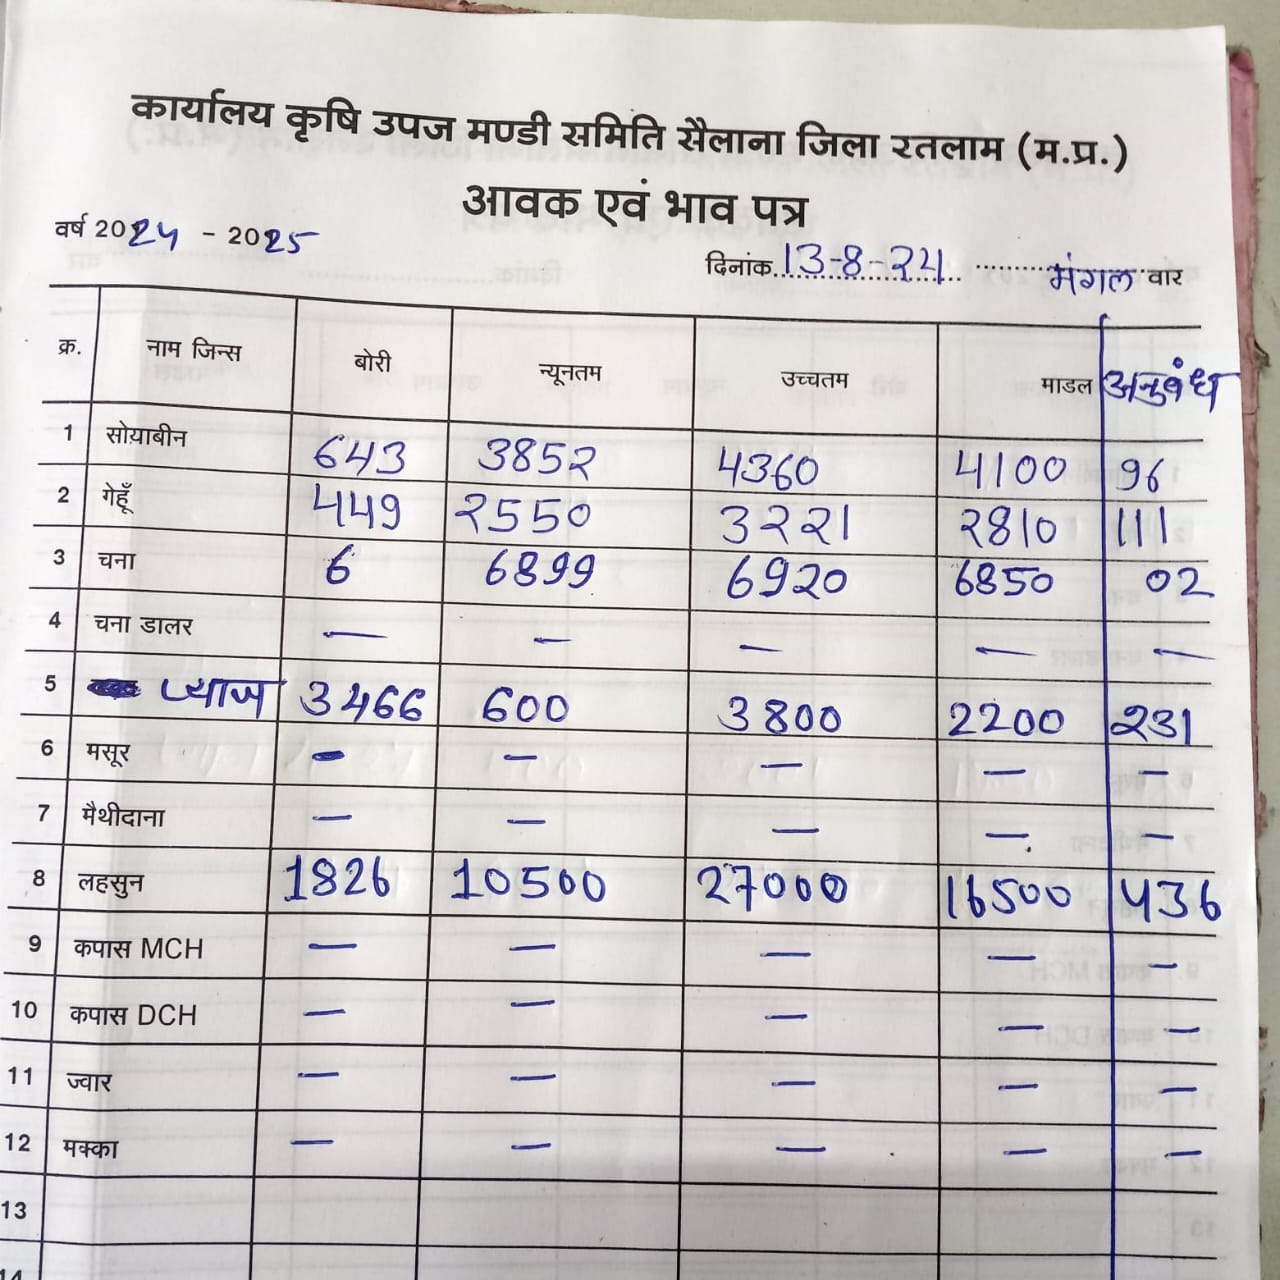 कार्यालय कृषि उपज मण्डी समिति सैलाना जिला रतलाम (म.प्र.)
आवक एवं भाव पत्र
वर्ष 2024 - 2025
दिनांक 13-8-24 मंगल वार
क्र. नाम जिन्स बोरी न्यूनतम उच्चतम माडल अनुबंध
1 सोयाबीन 643 3852 4360 4100 96
2 गेहूँ 449 2550 3221 2810 111
3 चना 6 6899 6920 6850 02
4 चना डालर — — — — —
5 प्याज 3466 600 3800 2200 231
6 मसूर — — — — —
7 मैथीदाना — — — — —
8 लहसुन 1826 10500 27000 16500 436
9 कपास MCH — — — — —
10 कपास DCH — — — — —
11 ज्वार — — — — —
12 मक्का — — — — —
13
14